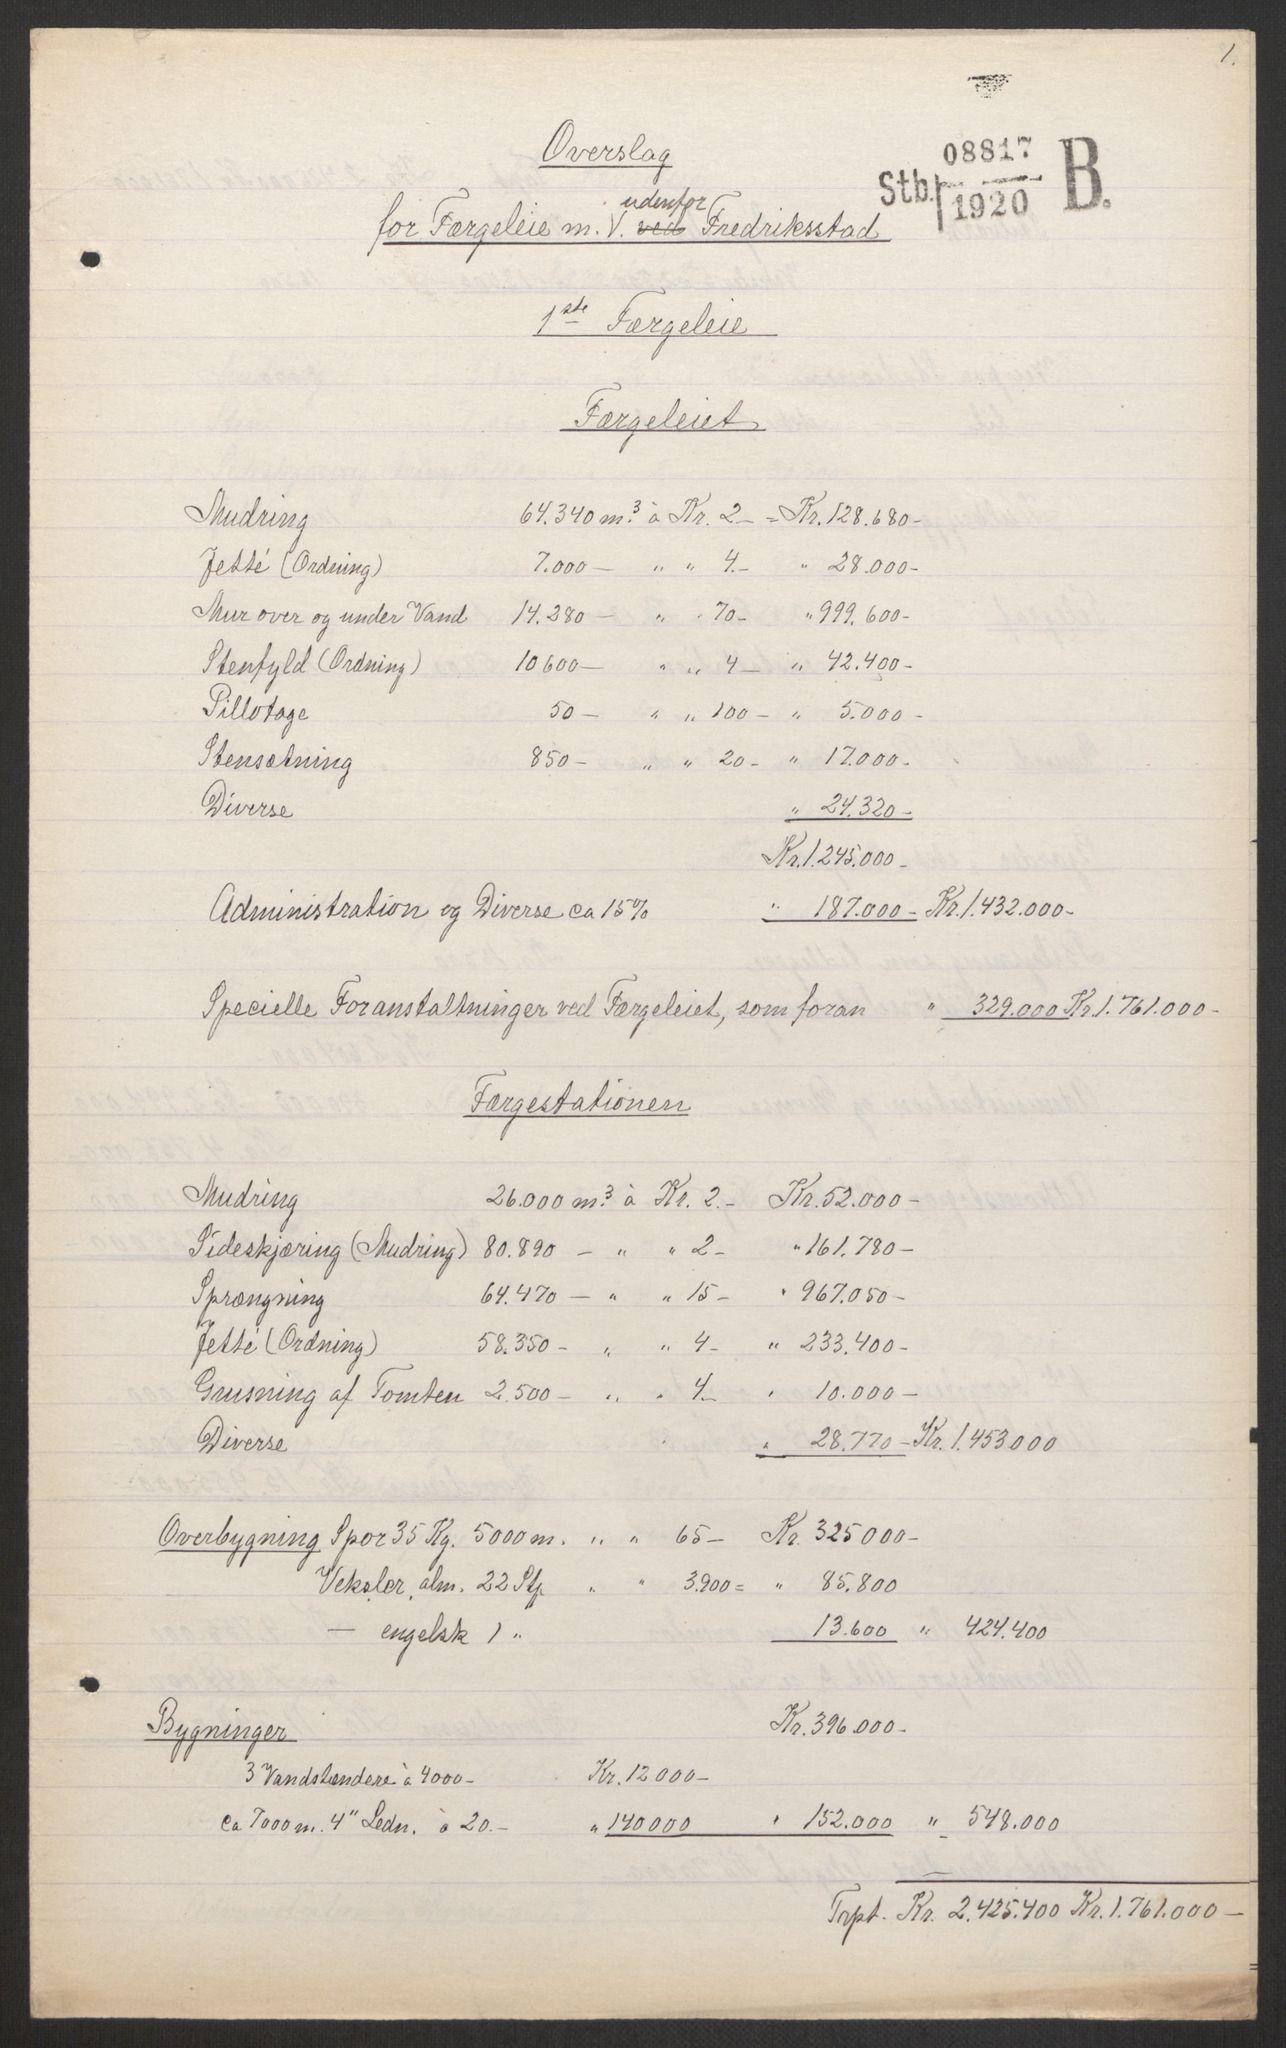 1.
Overslag
08817
Stb. 1920 B.
udenfor
for Færgeleie m. V. ved Fredriksstad
1ste Færgeleie
Færgeleiet
Mudring 64.340 m.3 à Kr. 2 – = Kr. 128.680 –
Jetté (Ordning) 7.000 – " " 4. – " 28.000 –
Mur over og under Vand 14.280 – " " 70 – " 999.600 –
Stenfyld (Ordning) 10600 – " " 4 – " 42.400 –
Pillotage 50 – " " 100 – " 5.000 –
Stensætning 850 – " " 20 – " 17.000 –
Diverse " 24.320 –
Kr. 1.245.000 –
Administration og Diverse ca 15% " 187.000 – Kr. 1.432.000 –
Specielle Foranstaltninger ved Færgeleiet, som foran " 329.000 Kr. 1.761.000 –
Færgestationen
Mudring 26.000 m.3 à Kr. 2. – Kr. 52.000 –
Sideskjæring (Mudring) 80.890 – " " 2 – " 161.780 –
Sprængning 64.470 – " " 15 – " 967.050 –
Jetté (Ordning) 58.350 – " " 4 – " 233.400 –
Grusning af Tomten 2.500 – " " 4 – " 10.000 –
Diverse " 28.770 – Kr. 1.453.000
Overbygning Spor 35 Kg. 5000 m. " " 65 – Kr. 325000 –
Veksler, alm. 22 Stp " " 3.900 = " 85.800
— engelsk 1 " 13.600 " 424.400
Bygninger Kr. 396.000 –
3 Vandstændere à 4000 – Kr. 12000 –
ca 7000 m. 4" Ledn. à 20. – " 140000 " 152.000 " 548.000
Trpt. Kr. 2.425.400 Kr. 1.761.000 –